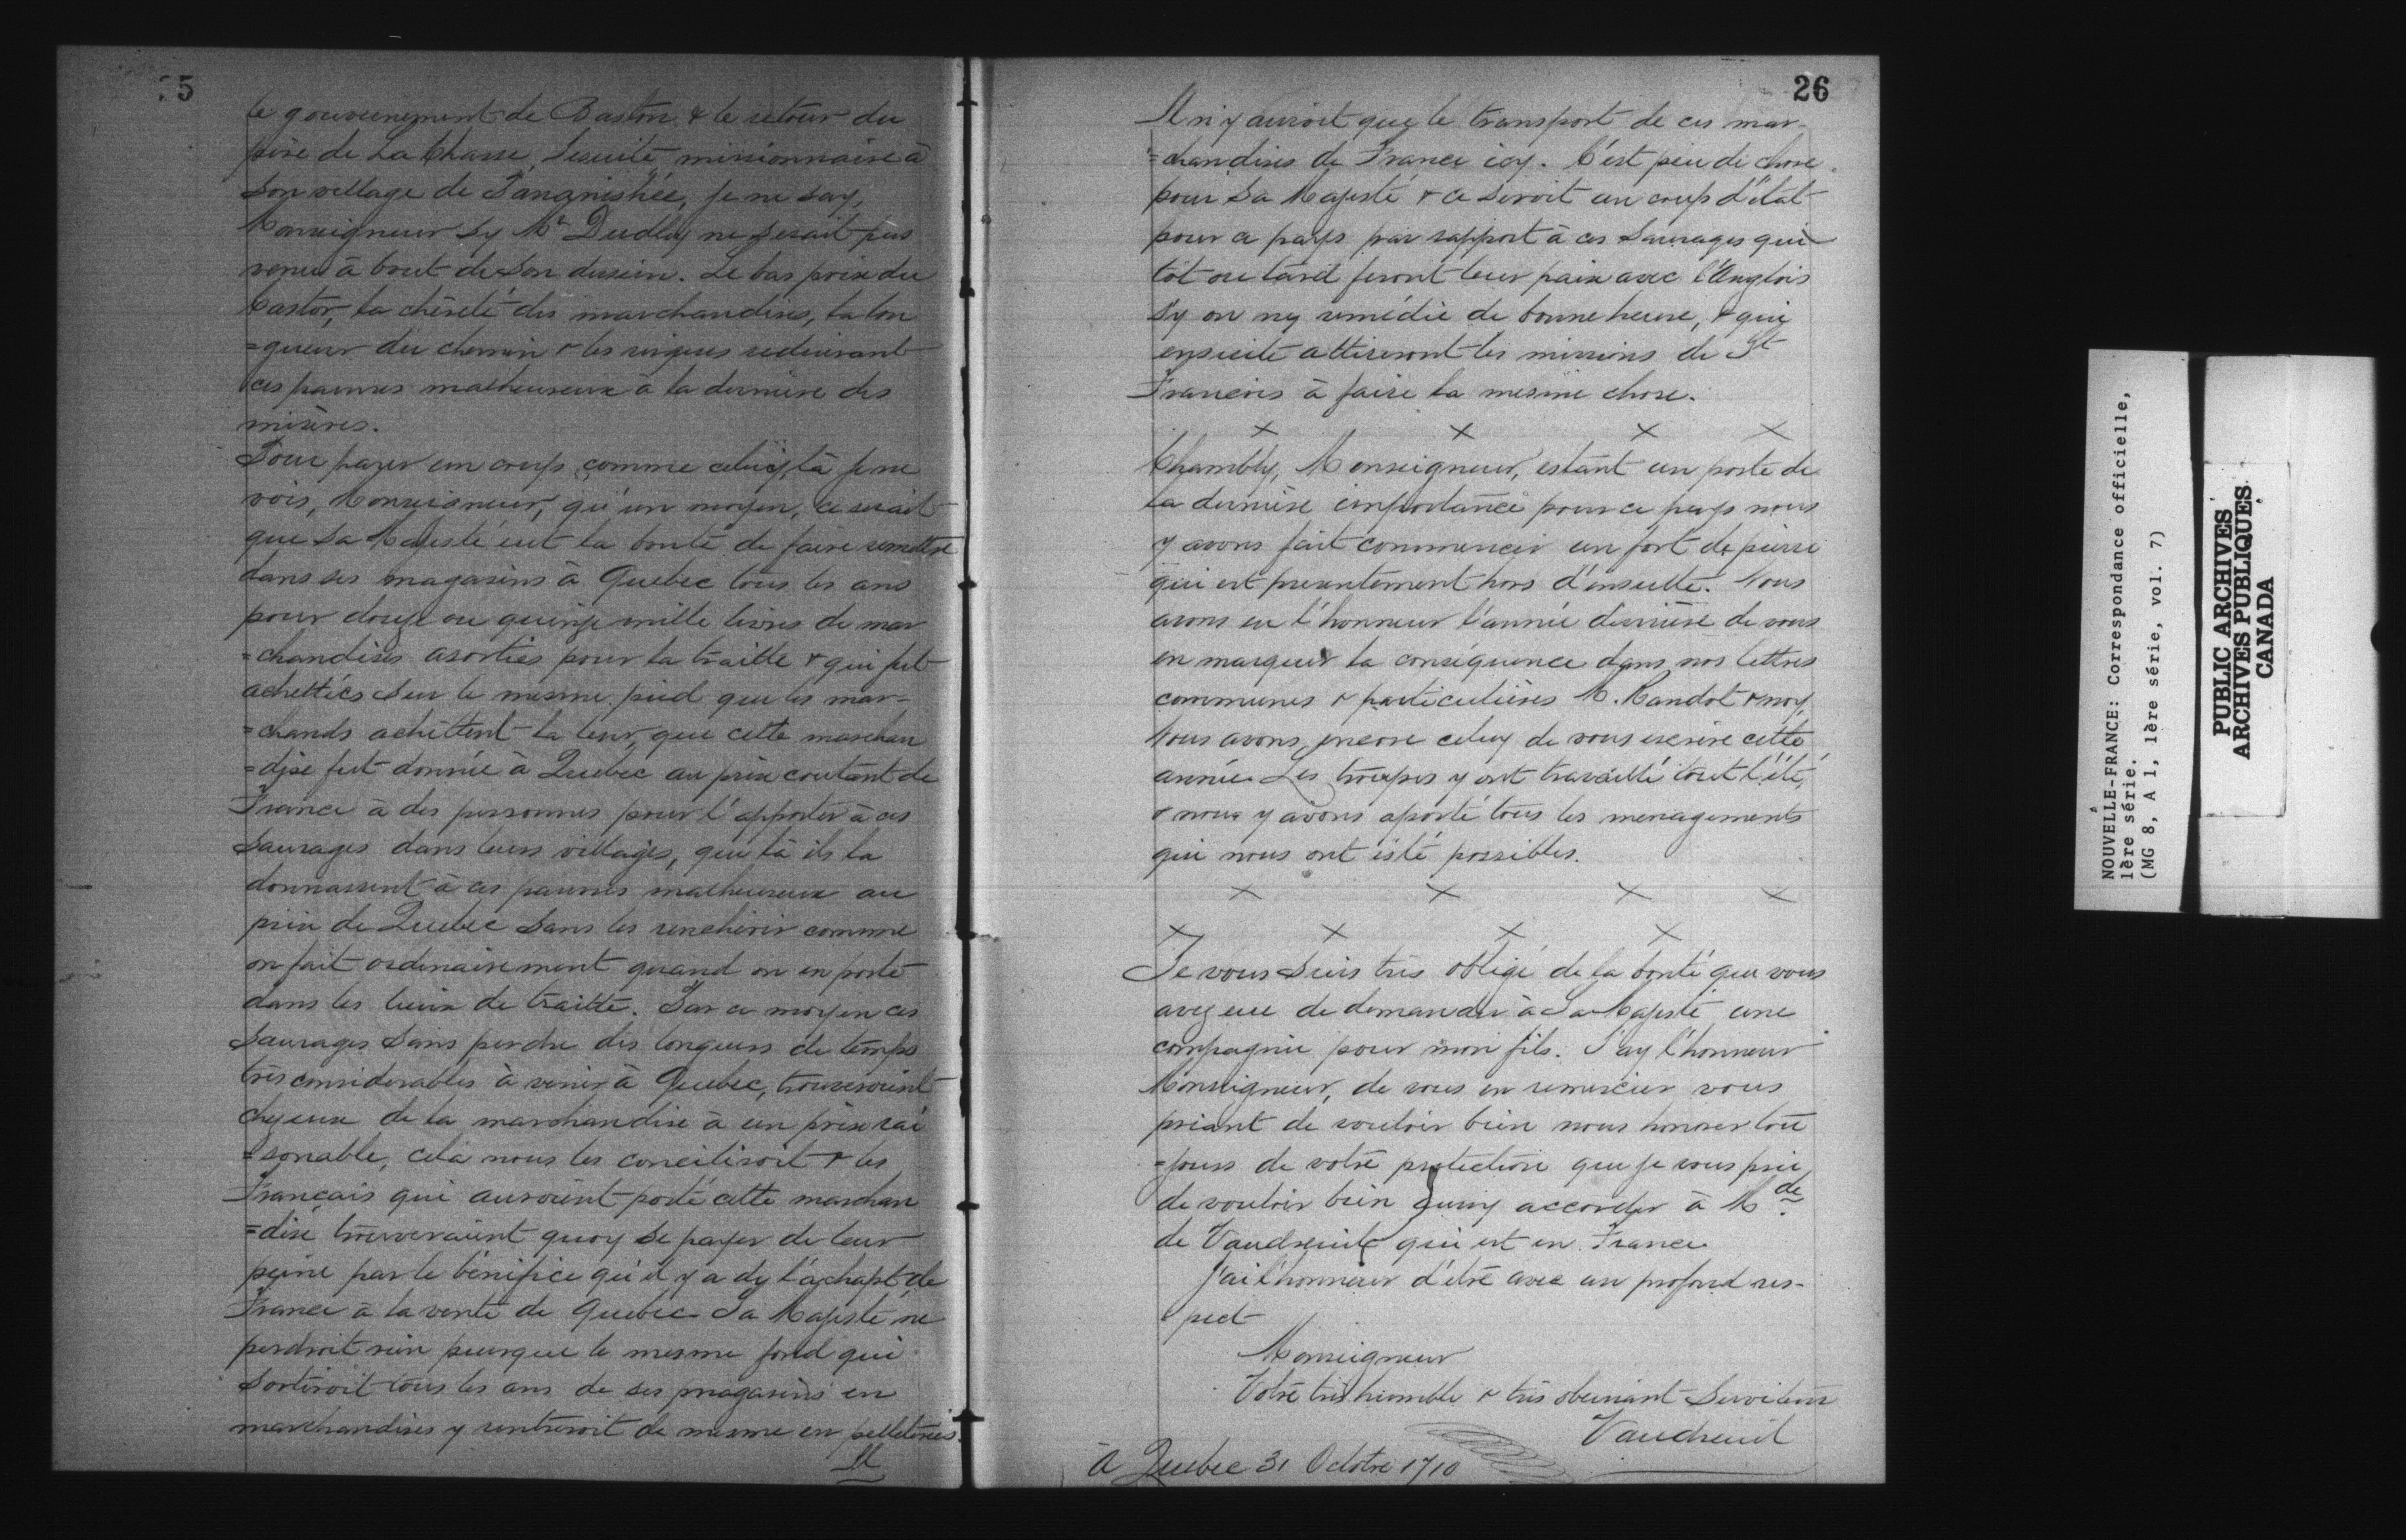 25
le gouvernement de Baston & le retour du
père de La Chasse Jesuite missionnaire à
son village de Panguishée, je ne say,
Monseigneur sy Mr Dudley ne serait pas
venu à bout de son dessein. Le bas prix du
Castor, la chèreté des marchandises, la lon
=gueur du chemin & les risques reduisant
ces pauvres malheureux à la dernière des
misères.
Pour parer un coup comme celuy là je ne
vois, Monseigneur, qu'un moyen, ce serait
que Sa Majesté eut la bonté de faire remettre
dans ses magasins à Quebec tous les ans
pour douze ou quinze mille livres de mar
=chandises asorties pour la traitte & qui fut
achettées sur le mesme pied que les mar-
=chands achettent la leur, que cette marchan
=dise fut donnée à Quebec au prix coutant de
France à des personnes pour l'apporter à ces
Sauvages dans leurs villages, que là ils la
donnassent à ces pauvres malheureux au
prix de Quebec sans les renchérir comme
on fait ordinairement quand on en porte
dans les lieux de traitte. Par ce moyen ces
Sauvages sans perdre des longueurs de temps
très considerables à venir à Quebec, trouveroient
chez eux de la marchandise à un prix rai
=sonable, cela nous les concilieroit & les
Français qui auroient porté cette marchan
=dise trouveraient quoy se payer de leur
peine par le bénéfice qu'il y a de l'achapt de
France à la vente de Quebec Sa Majesté ne
perdroit rien puisque le mesme fond qui
sortiroit tous les ans de ses magasins en
marchandises y rentreroit de mesme en pelleteries.
Il
26
Il n'y auroit que le transport de ces mar-
=chandises de France icy. C'est peu de chose
pour Sa Majesté & ce seroit un coup d'état
pour ce pays par rapport à ces Sauvages qui
tôt ou tard feront leur paix avec l'Anglois
sy on ny remédie de bonne heure, & qui
ensuite attireront les missions de St
François à faire la mesme chose.
x x x x
Chambly, Monseigneur, estant un poste de
la dernière importance pour ce pays nous
y avons fait commencer un fort de pierre
qui est presentement hors d'insulte. Nous
avons eu l'honneur l'année dernière de vous
en marquer la conséquence dans nos lettres
communes & particulières M. Raudot & moy,
Nous avons encore celuy de vous escrire cette
année Les troupes y ont travaillé tout l'été,
& nous y avons aporté tous les menagements
qui nous ont esté possibles.
x x x x
x x x x
Je vous suis très obligé de la bonté que vous
avez eue de demander à Sa Majesté une
compagnie pour mon fils. J'ay l'honneur
Monseigneur, de vous en remercier vous
priant de vouloir bien nous honorer tou
=jours de votre protection que je vous prie
de vouloir bien accorder à Mde
de Vaudreuil qui est en France
j'ai l'honneur d'etre avec un profond res-
pect
Monseigneur
Votre très humble & très obeissant Serviteur
Vaudreuil
à Quebec 31 Octobre 1710
NOUVELLE-FRANCE: Correspondance officielle,
1ère série.
(MG 8, A 1, 1ère série, vol. 7)
PUBLIC ARCHIVES
ARCHIVES PUBLIQUES
CANADA